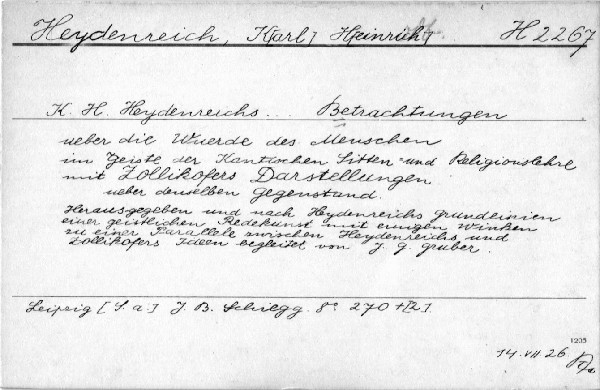 Heydenreich, K[arl] H[einrich] H 2267
K. H. Heydenreichs... Betrachtungen
ueber die Wuerde des Menschen
im Geiste der Kantischen Sitten- und Religionslehre
mit Zollikofers Darstellungen
ueber denselben Gegenstand.
Herausgegeben und nach Heydenreichs Grundlinien
einer geistlichen Redekunst mit einigen Winken
zu einer Parallele zwischen Heydenreichs und
Zollikofers Ideen begleitet von J. G. Gruber.
Leipzig [S. a.] J. B. Schiegg 8° 270 + [2].
1235
14. VII 26